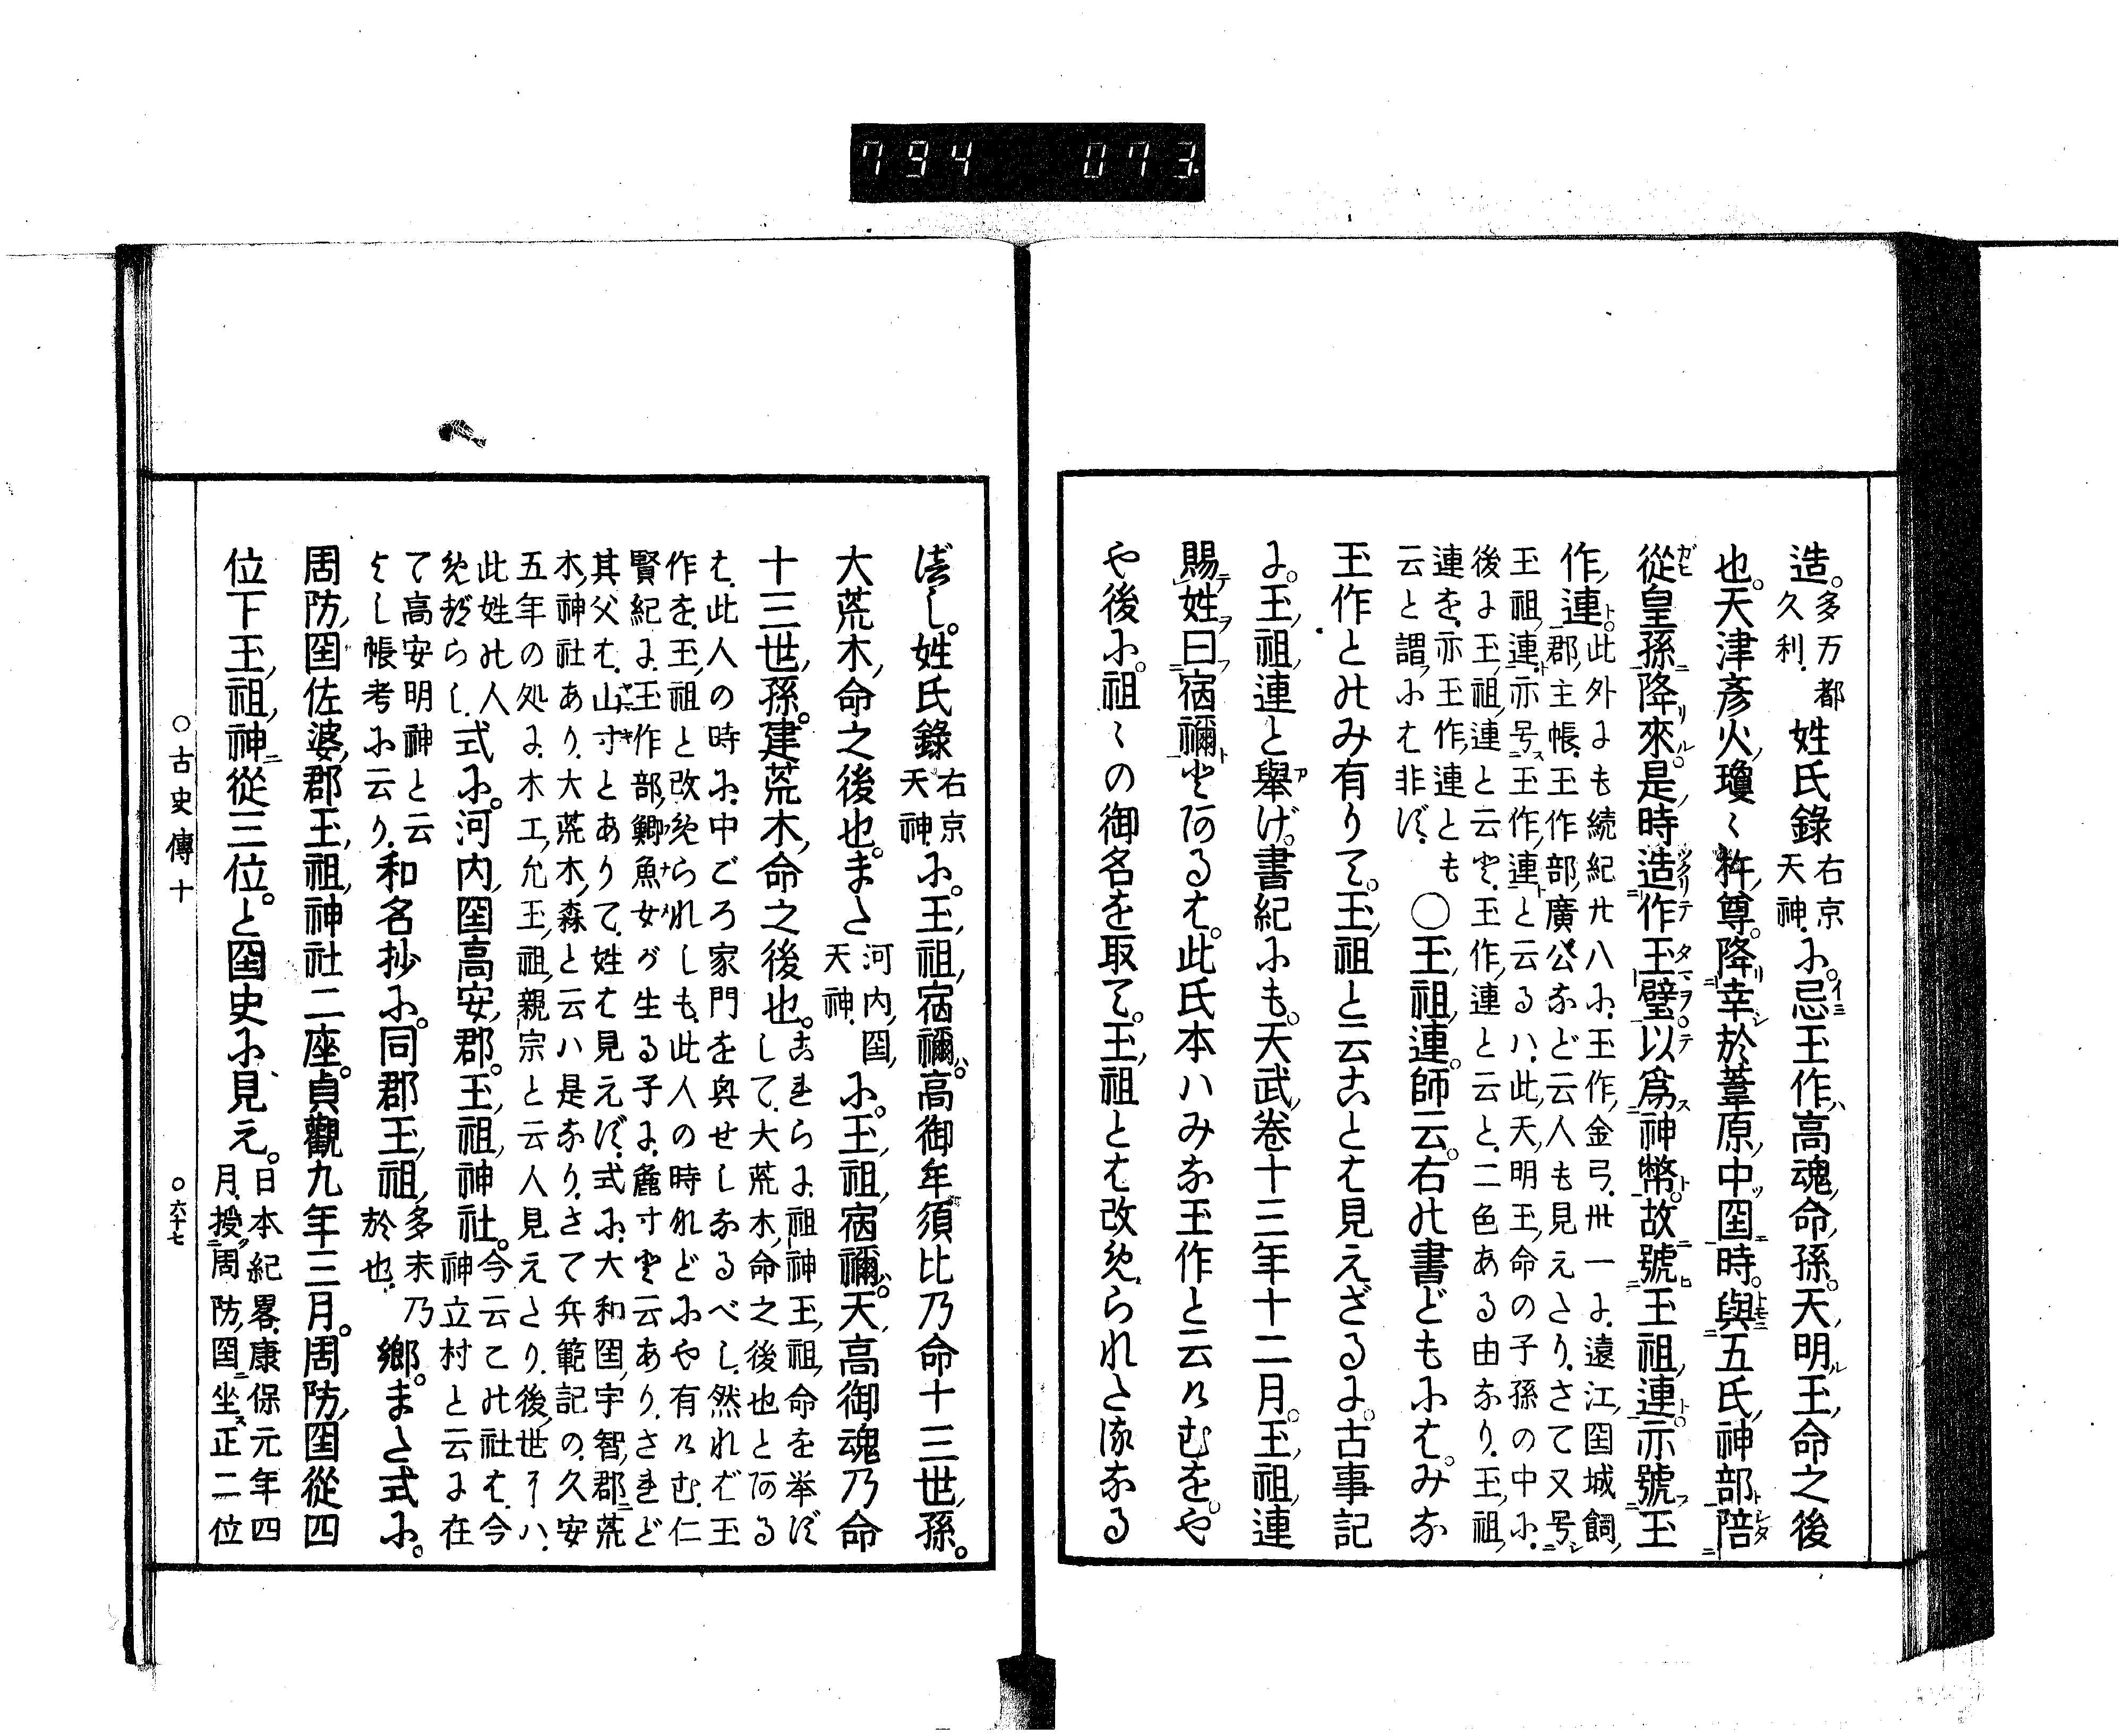 794 073
造。多万都久利。姓氏錄右京天神。ふ。忌玉作。高魂命孫。天明玉命之後
也。天津彥火瓊〻杵尊。降幸於葦原中国時。與五氏神部陪
從皇孫降來。是時造作玉璧以爲神幣。故號玉祖連。亦號玉
作連。此外よも続紀廿八ふ。玉作金弓。卅一よ。遠江国城飼
郡主帳。玉作部廣公など云人も見えたり。さて又号
玉祖連。亦号玉作連と云るハ。此天明玉命の子孫の中ふ。
後よ玉祖連と云と。玉作連と云と。二色ある由なり。玉祖
連を。亦玉作連とも
云と謂ふは非ず。
〇玉祖連。師云。右の書どもふは。みな
玉作とのみ有りて。玉祖と云ことは見えざるよ。古事記
よ。玉祖連と舉げ。書紀ふも。天武卷十三年十二月。玉祖連
賜姓曰宿禰とあるは。此氏本ハみな玉作と云けむを。や
や後ふ。祖〻の御名を取て。玉祖とは改められたるなる
べし。姓氏錄右京天神。ふ。玉祖宿禰。高御牟須比乃命十三世孫。
大荒木命之後也。また河内国天神。ふ。玉祖宿禰。天高御魂乃命
十三世孫。建荒木命之後也。これらよ。祖神玉祖命を挙ず
して。大荒木命之後也とある
は。此人の時ふ。中ごろ家門を興せしなるべし。然れば玉
作を。玉祖と改められしも。此人の時などにや有けむ。仁
賢紀よ。玉作部鯽魚女が生る子よ。麁寸と云あり。されど
其父は。山寸とありて。姓は見えず。式ふ。大和国宇智郡荒
木神社あり。大荒木森と云ハ是なり。さて兵範記の。久安
五年の処よ。木工允玉祖親宗と云人見えたり。後世ハ。
此姓の人
めづらし。式ふ。河内国高安郡。玉祖神社。今云この社は。今
神立村と云よ在
て高安明神と云
よし帳考ふ云り。和名抄ふ。同郡玉祖多末乃於也。鄉。また式ふ。
周防国佐婆郡玉祖神社二座。貞觀九年三月。周防国從四
位下玉祖神從三位。と国史ふ見え。日本紀畧。康保元年四
月。授周防国坐正二位
〇古史傳十
〇六十七